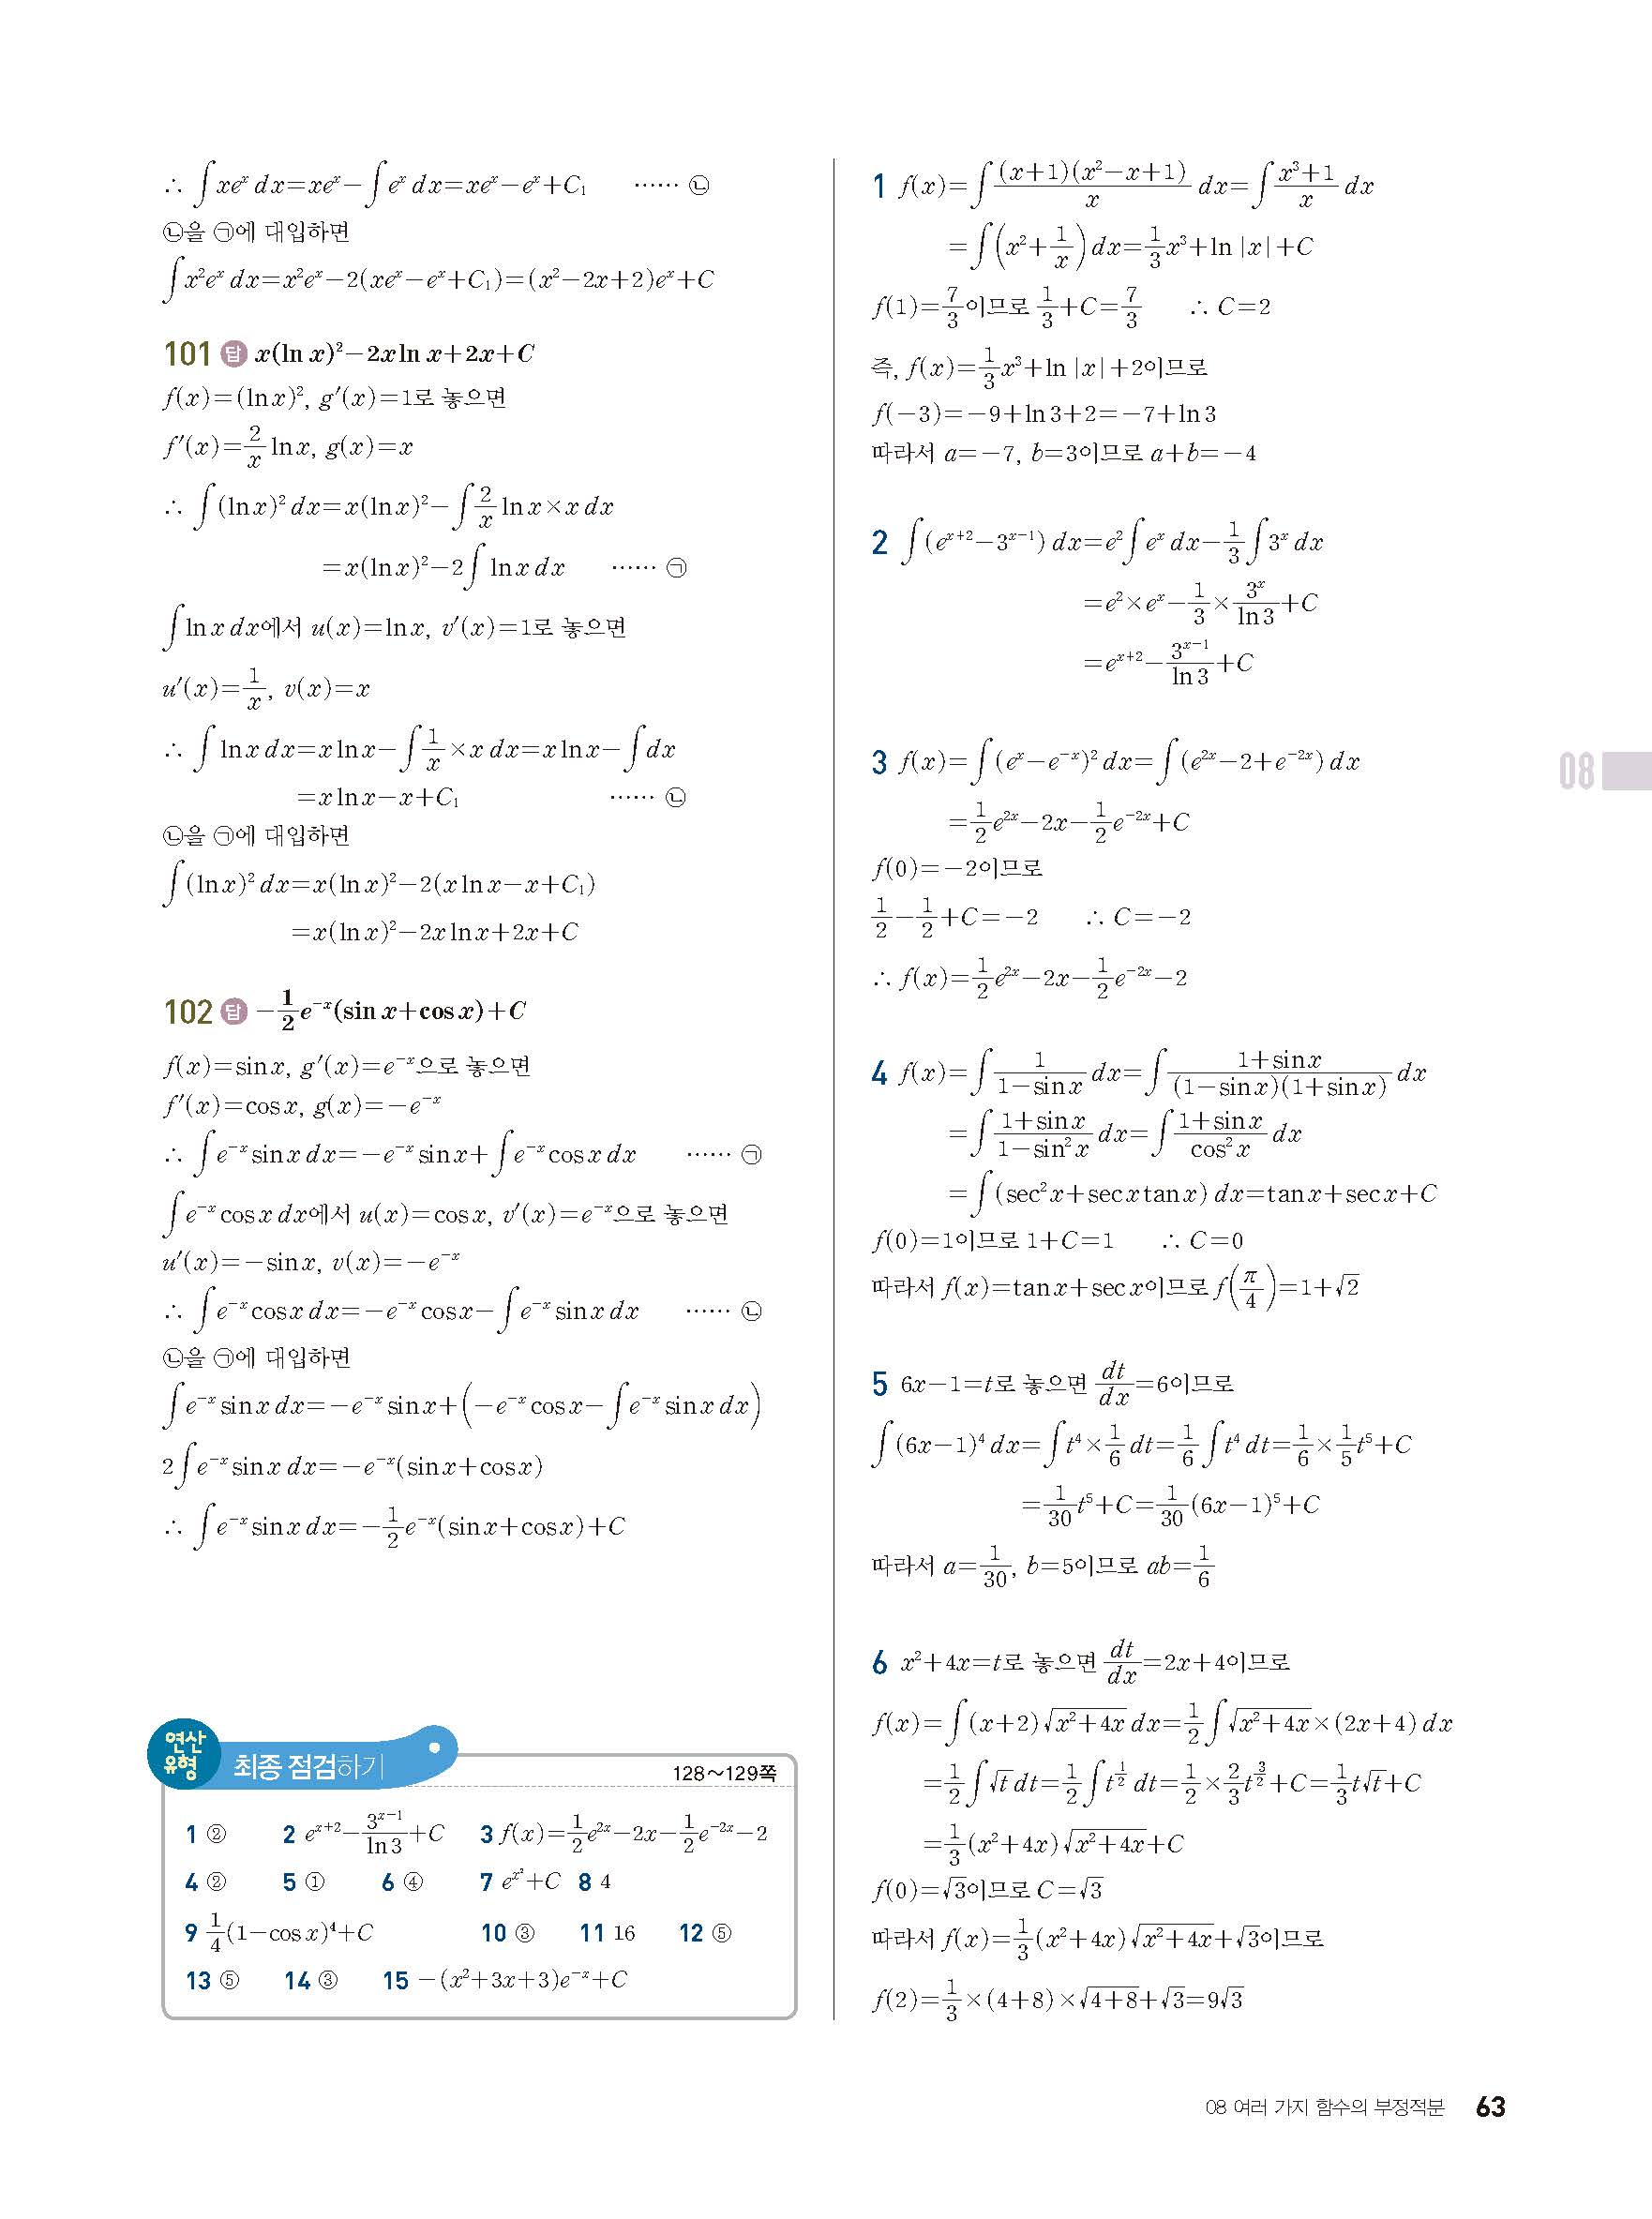 ∴ ∫xeˣ dx=xeˣ−∫eˣ dx=xeˣ−eˣ+C₁ …… ㉡
㉡을 ㉠에 대입하면
∫x²eˣ dx=x²eˣ−2(xeˣ−eˣ+C₁)=(x²−2x+2)eˣ+C
101 답 x(ln x)²−2x ln x+2x+C
f(x)=(ln x)², g′(x)=1로 놓으면
f′(x)=2/x ln x, g(x)=x
∴ ∫(ln x)² dx=x(ln x)²−∫2/x ln x×x dx
=x(ln x)²−2∫ln x dx …… ㉠
∫ln x dx에서 u(x)=ln x, v′(x)=1로 놓으면
u′(x)=1/x, v(x)=x
∴ ∫ln x dx=x ln x−∫1/x×x dx=x ln x−∫dx
=x ln x−x+C₁ …… ㉡
㉡을 ㉠에 대입하면
∫(ln x)² dx=x(ln x)²−2(x ln x−x+C₁)
=x(ln x)²−2x ln x+2x+C
102 답 −1/2 e⁻ˣ(sin x+cos x)+C
f(x)=sin x, g′(x)=e⁻ˣ으로 놓으면
f′(x)=cos x, g(x)=−e⁻ˣ
∴ ∫e⁻ˣ sin x dx=−e⁻ˣ sin x+∫e⁻ˣ cos x dx …… ㉠
∫e⁻ˣ cos x dx에서 u(x)=cos x, v′(x)=e⁻ˣ으로 놓으면
u′(x)=−sin x, v(x)=−e⁻ˣ
∴ ∫e⁻ˣ cos x dx=−e⁻ˣ cos x−∫e⁻ˣ sin x dx …… ㉡
㉡을 ㉠에 대입하면
∫e⁻ˣ sin x dx=−e⁻ˣ sin x+(−e⁻ˣ cos x−∫e⁻ˣ sin x dx)
2∫e⁻ˣ sin x dx=−e⁻ˣ(sin x+cos x)
∴ ∫e⁻ˣ sin x dx=−1/2 e⁻ˣ(sin x+cos x)+C
연산
유형 최종 점검하기 128~129쪽
1 ② 2 eˣ⁺²−3ˣ⁻¹/ln 3+C 3 f(x)=1/2 e²ˣ−2x−1/2 e⁻²ˣ−2
4 ② 5 ① 6 ④ 7 e^(x²)+C 8 4
9 1/4(1−cos x)⁴+C 10 ③ 11 16 12 ⑤
13 ⑤ 14 ③ 15 −(x²+3x+3)e⁻ˣ+C
1 f(x)=∫(x+1)(x²−x+1)/x dx=∫(x³+1)/x dx
=∫(x²+1/x)dx=1/3 x³+ln |x|+C
f(1)=7/3이므로 1/3+C=7/3 ∴ C=2
즉, f(x)=1/3 x³+ln |x|+2이므로
f(−3)=−9+ln 3+2=−7+ln 3
따라서 a=−7, b=3이므로 a+b=−4
2 ∫(eˣ⁺²−3ˣ⁻¹) dx=e²∫eˣ dx−1/3∫3ˣ dx
=e²×eˣ−1/3×3ˣ/ln 3+C
=eˣ⁺²−3ˣ⁻¹/ln 3+C
3 f(x)=∫(eˣ−e⁻ˣ)² dx=∫(e²ˣ−2+e⁻²ˣ) dx
=1/2 e²ˣ−2x−1/2 e⁻²ˣ+C
f(0)=−2이므로
1/2−1/2+C=−2 ∴ C=−2
∴ f(x)=1/2 e²ˣ−2x−1/2 e⁻²ˣ−2
4 f(x)=∫1/(1−sin x) dx=∫(1+sin x)/((1−sin x)(1+sin x)) dx
=∫(1+sin x)/(1−sin² x) dx=∫(1+sin x)/(cos² x) dx
=∫(sec² x+sec x tan x) dx=tan x+sec x+C
f(0)=1이므로 1+C=1 ∴ C=0
따라서 f(x)=tan x+sec x이므로 f(π/4)=1+√2
5 6x−1=t로 놓으면 dt/dx=6이므로
∫(6x−1)⁴ dx=∫t⁴×1/6 dt=1/6∫t⁴ dt=1/6×1/5 t⁵+C
=1/30 t⁵+C=1/30(6x−1)⁵+C
따라서 a=1/30, b=5이므로 ab=1/6
6 x²+4x=t로 놓으면 dt/dx=2x+4이므로
f(x)=∫(x+2)√(x²+4x) dx=1/2∫√(x²+4x)×(2x+4) dx
=1/2∫√t dt=1/2∫t^(1/2) dt=1/2×2/3 t^(3/2)+C=1/3 t√t+C
=1/3(x²+4x)√(x²+4x)+C
f(0)=√3이므로 C=√3
따라서 f(x)=1/3(x²+4x)√(x²+4x)+√3이므로
f(2)=1/3×(4+8)×√(4+8)+√3=9√3
08
08 여러 가지 함수의 부정적분 63